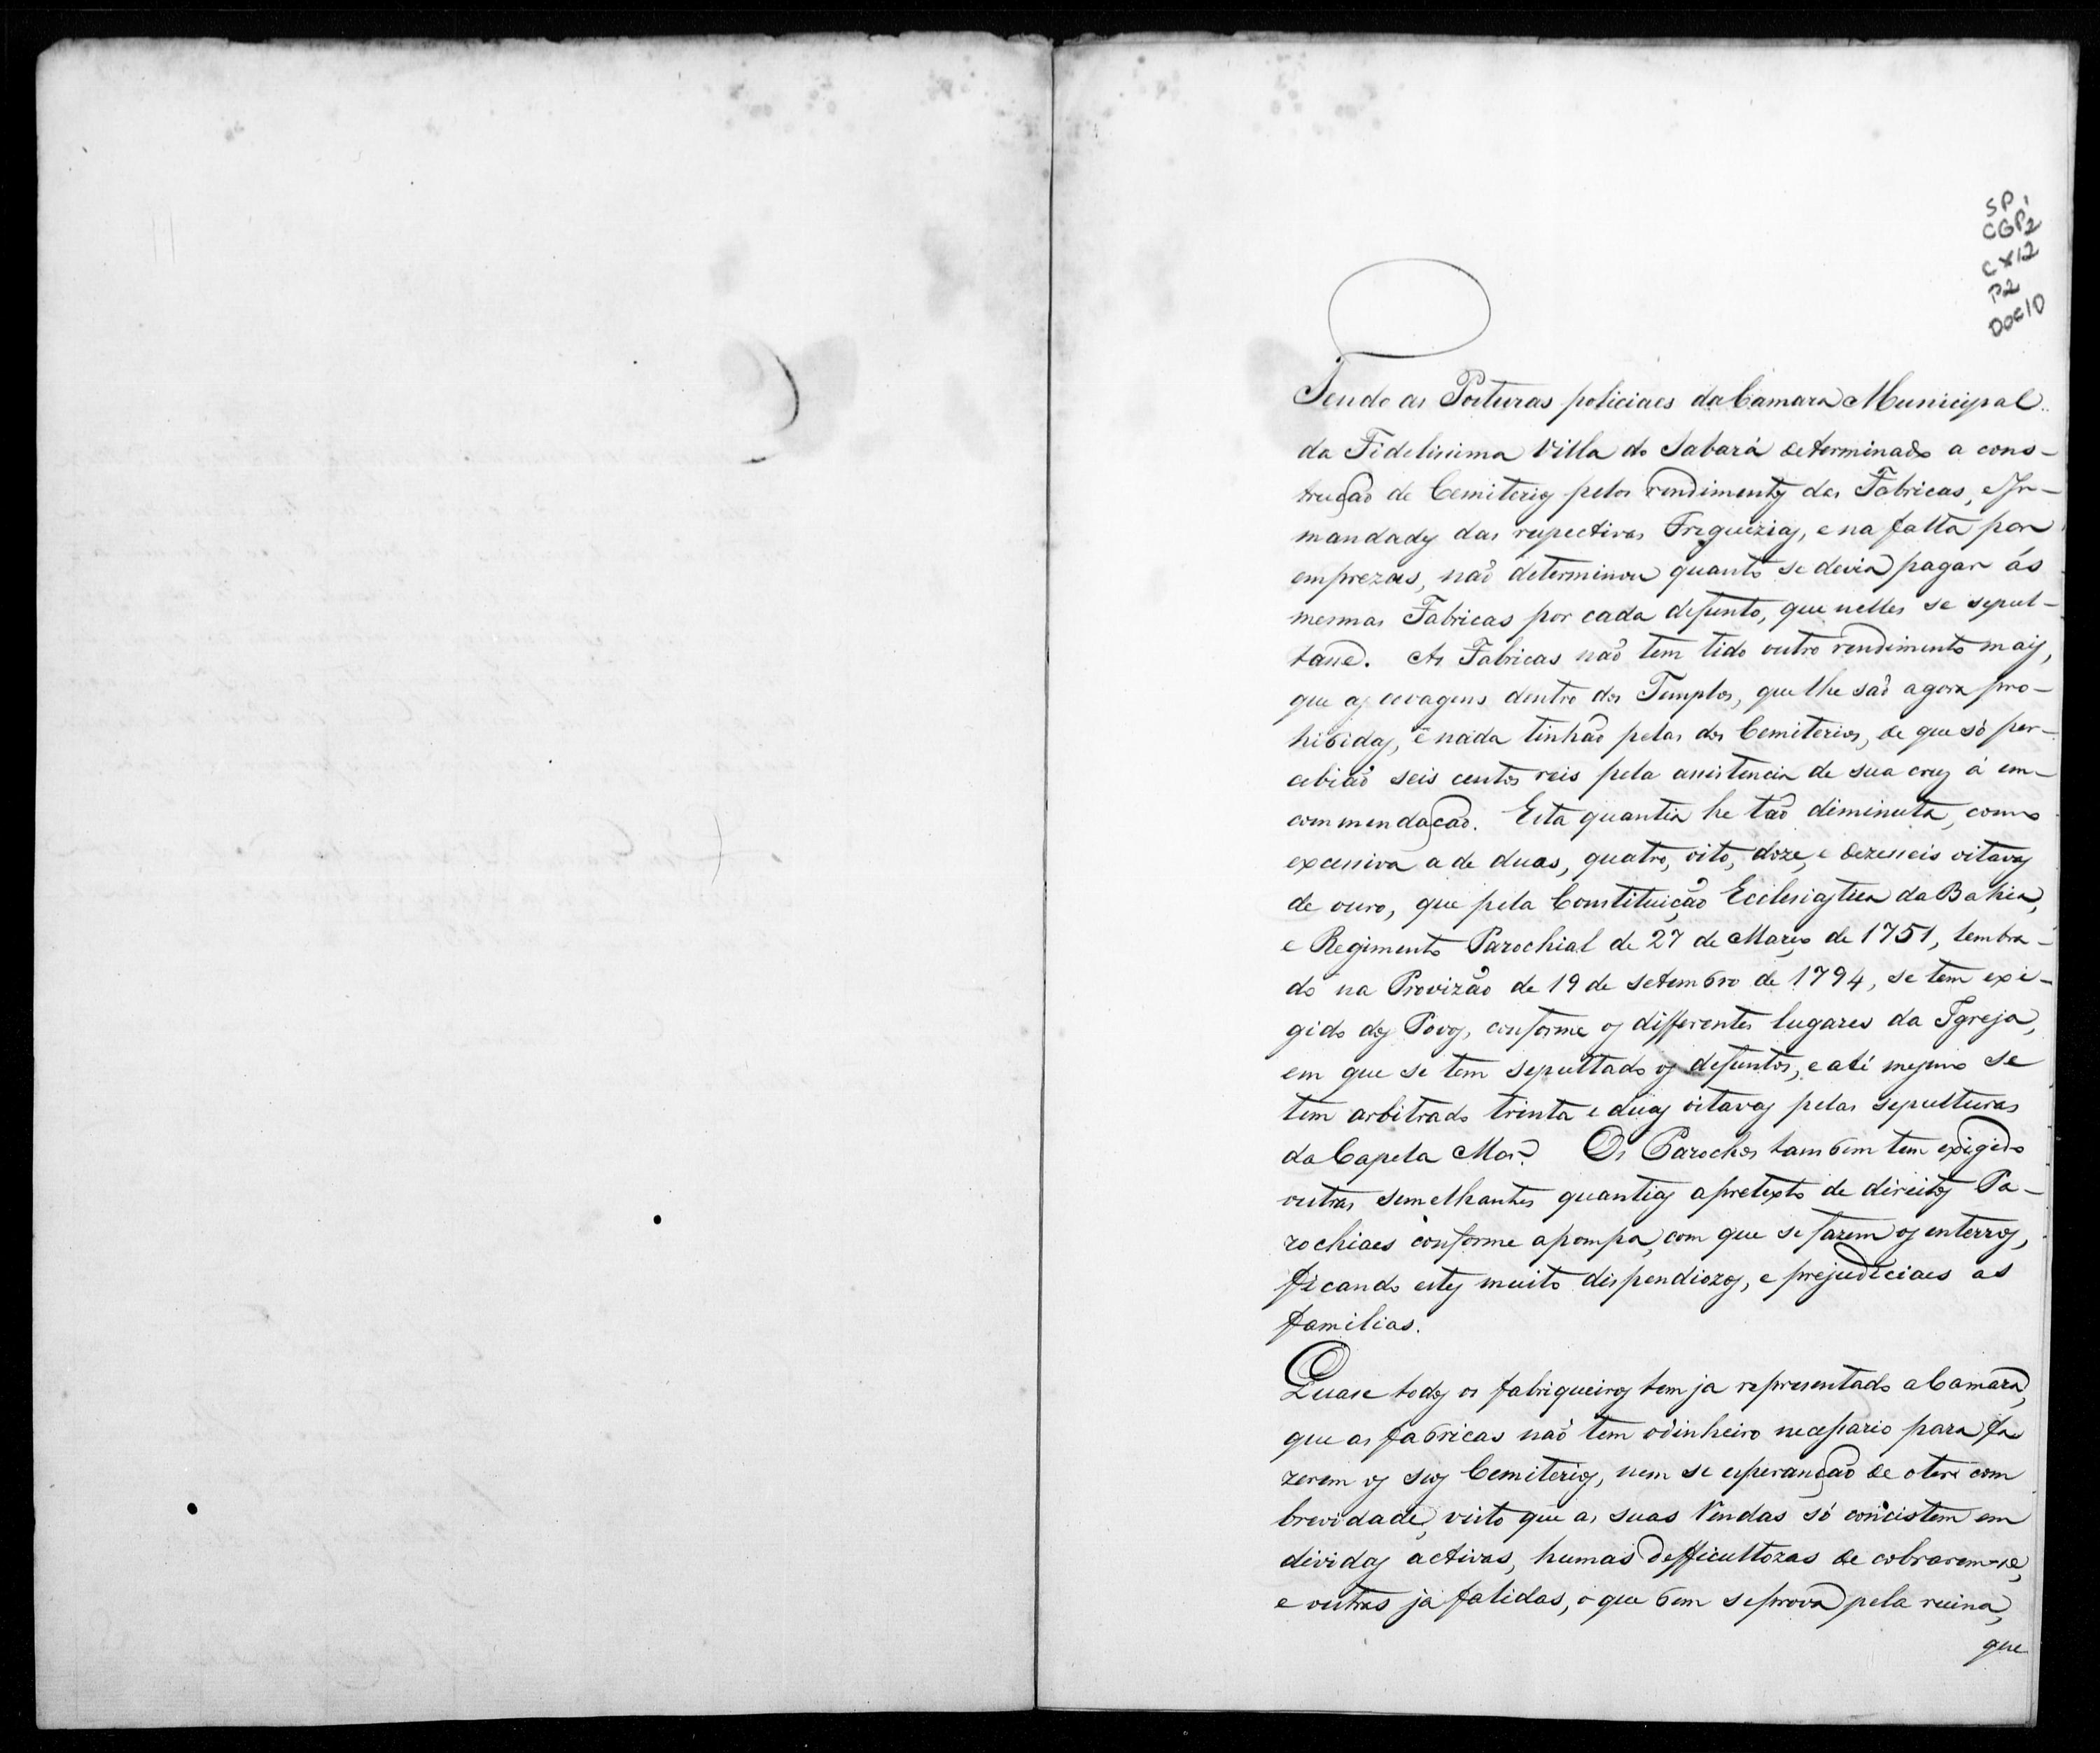 SP 1
CGP2
CX12
P2
Doc10
Tendo as Posturas policiaes da Camara Municipal
da Fidelissima Villa do Sabará determinado a cons-
trucção de Cemiterios pelos rendimentos das Fabricas, e Ir-
mandades das respectivas Freguezias, e na falta por
emprezas, não determinou quanto se devia pagar ás
mesmas Fabricas por cada defunto, que nelles se sepul-
tasse. As Fabricas não tem tido outro rendimento mais,
que as covagens dentro dos Templos, que lhe são agora pro-
hibidas, e nada tinhão pelas dos Cemiterios, de que só per-
cebião seis centos reis pela assistencia de sua cruz á em-
commendação. Esta quantia he tão diminuta, como
excessiva a de duas, quatro, oito, doze, e dezeseis oitavas
de ouro, que pela Constituição Ecclesiastica da Bahia,
e Regimento Parochial de 27 de Março de 1751, lembra-
do na Provizão de 19 de setembro de 1794, se tem exi-
gido dos Povos, conforme os differentes lugares da Igreja,
em que se tem sepultado os defuntos, e até mesmo se
tem arbitrado trinta e duas oitavas pelas sepulturas
da Capela Mor. Os Parochos tambem tem exigido
outras semelhantes quantias a pretexto de direitos Pa-
rochiaes conforme a pompa, com que se fazem os enterros,
ficando estes muito dispendiozos, e prejudiciaes as
familias.
Quase todos os fabriqueiros tem ja representado a Camara,
que as fabricas não tem o dinheiro necessario para fa
zerem os seos Cemiterios, nem se esperanção de o ter com
brevidade, visto que as suas Rendas só concistem em
dividas activas, humas defficultozas de cobrarem-se,
e outras ja falidas, o que bem se prova pela ruina,
que